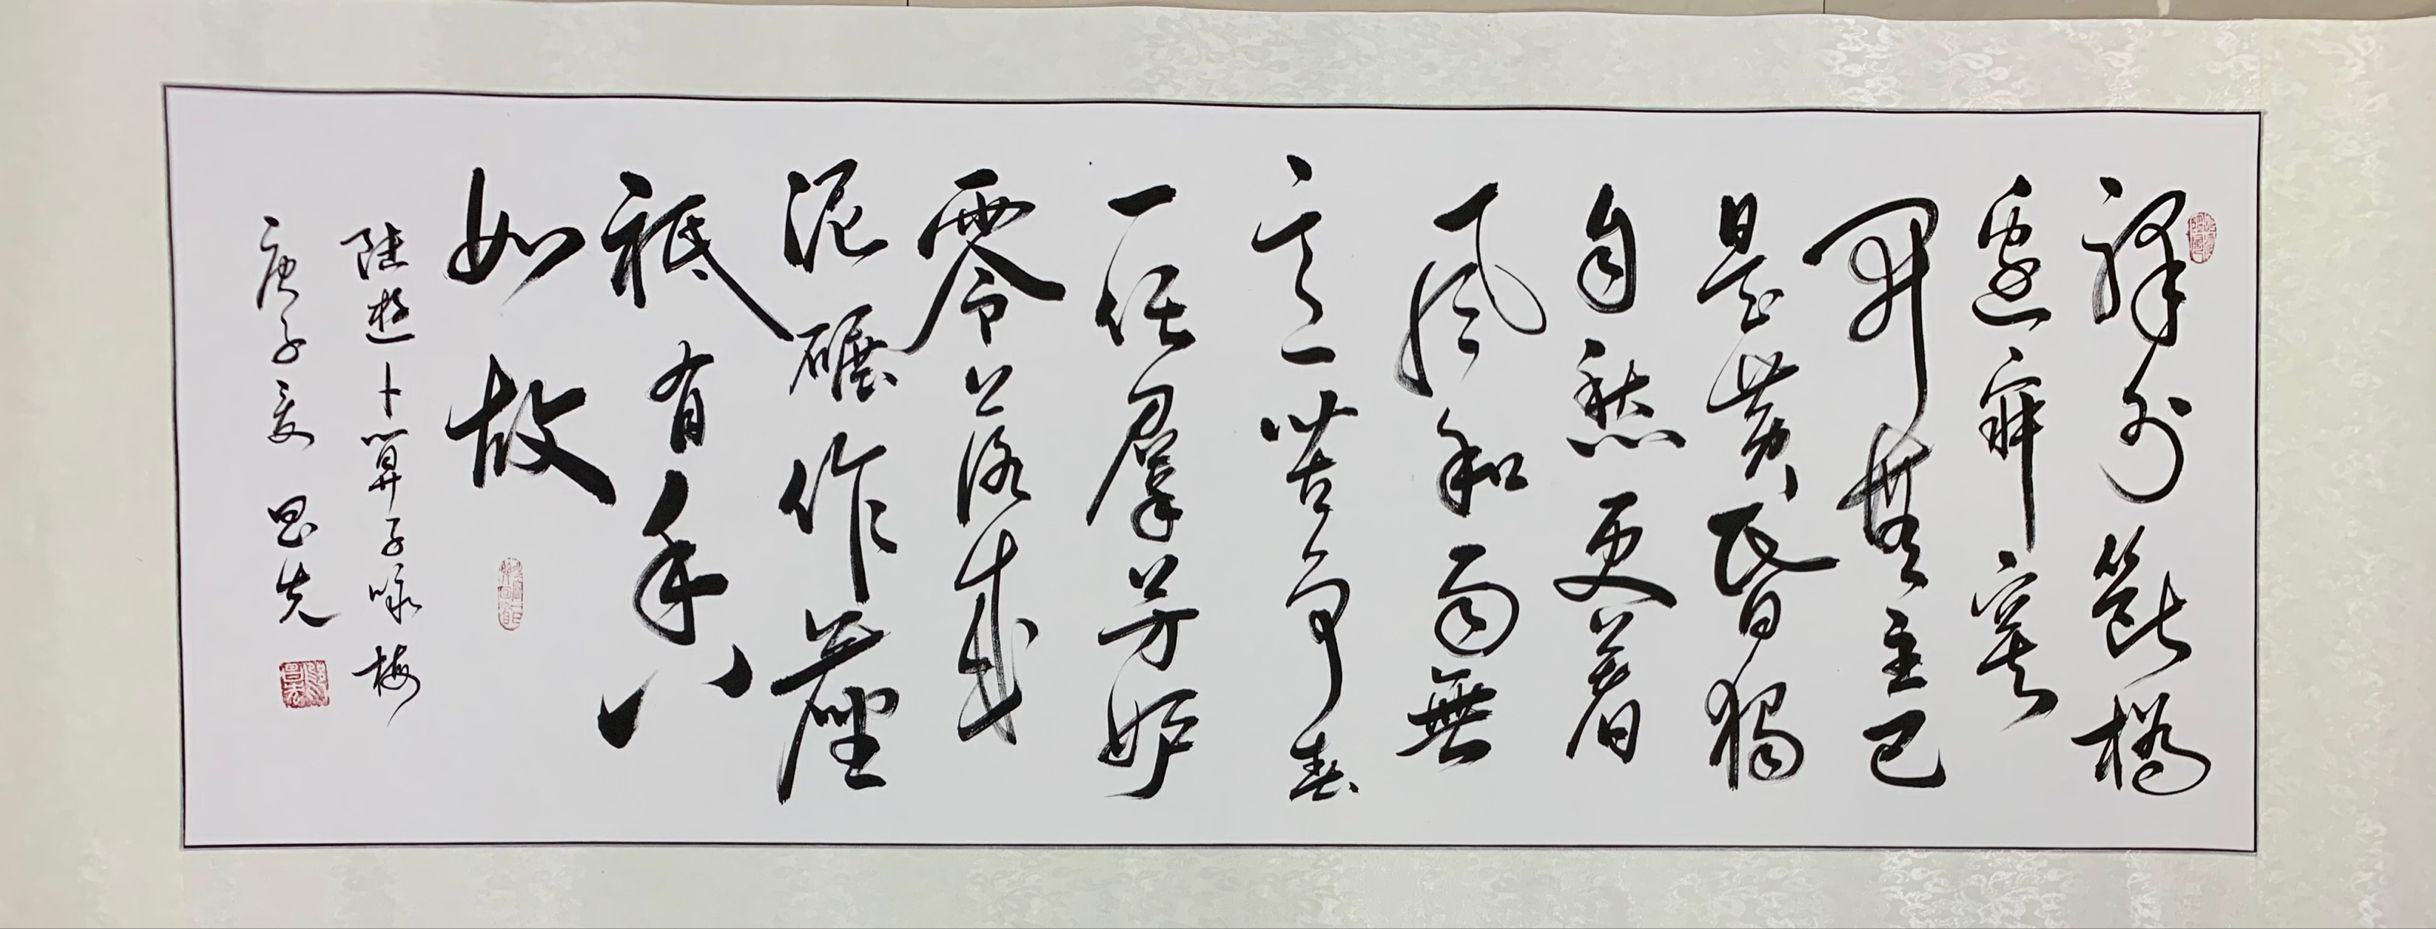 驛外斷橋
邊寂寞
開無主已
是黃昏獨
自愁更著
風和雨無
意苦爭春
一任羣芳妒
零落成
泥碾作塵
祇有香
如故
陸遊卜算子詠梅
庚子夏 先